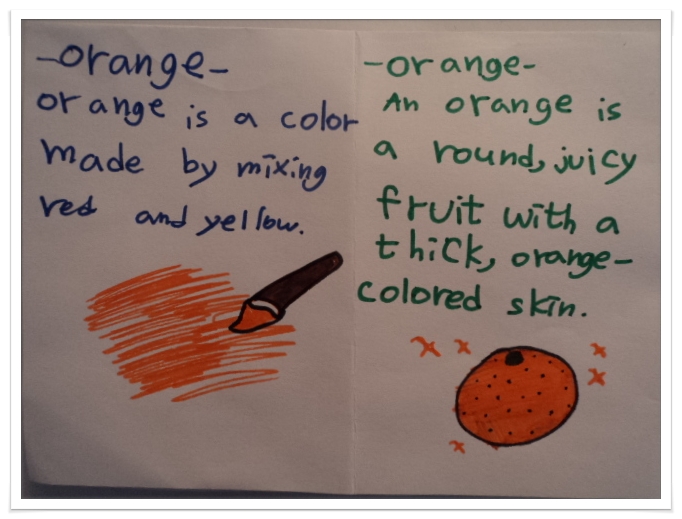 -orange-
orange is a color
made by mixing
red and yellow.
-orange-
An orange is
a round, juicy
fruit with a
thick, orange-
colored skin.